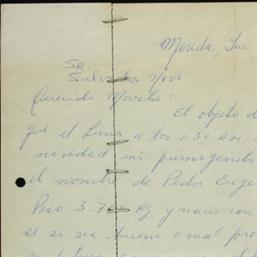 Merida, Yuc.
Sr.
Salvador Novo
Querido Maestro:
El objeto d
que el Lunes a las 1.30 A.M.
novedad mi primogenito
el nombre de Pedro Euge
Peso 3.700 Kg y nacio con
se si sea buen o mal pro